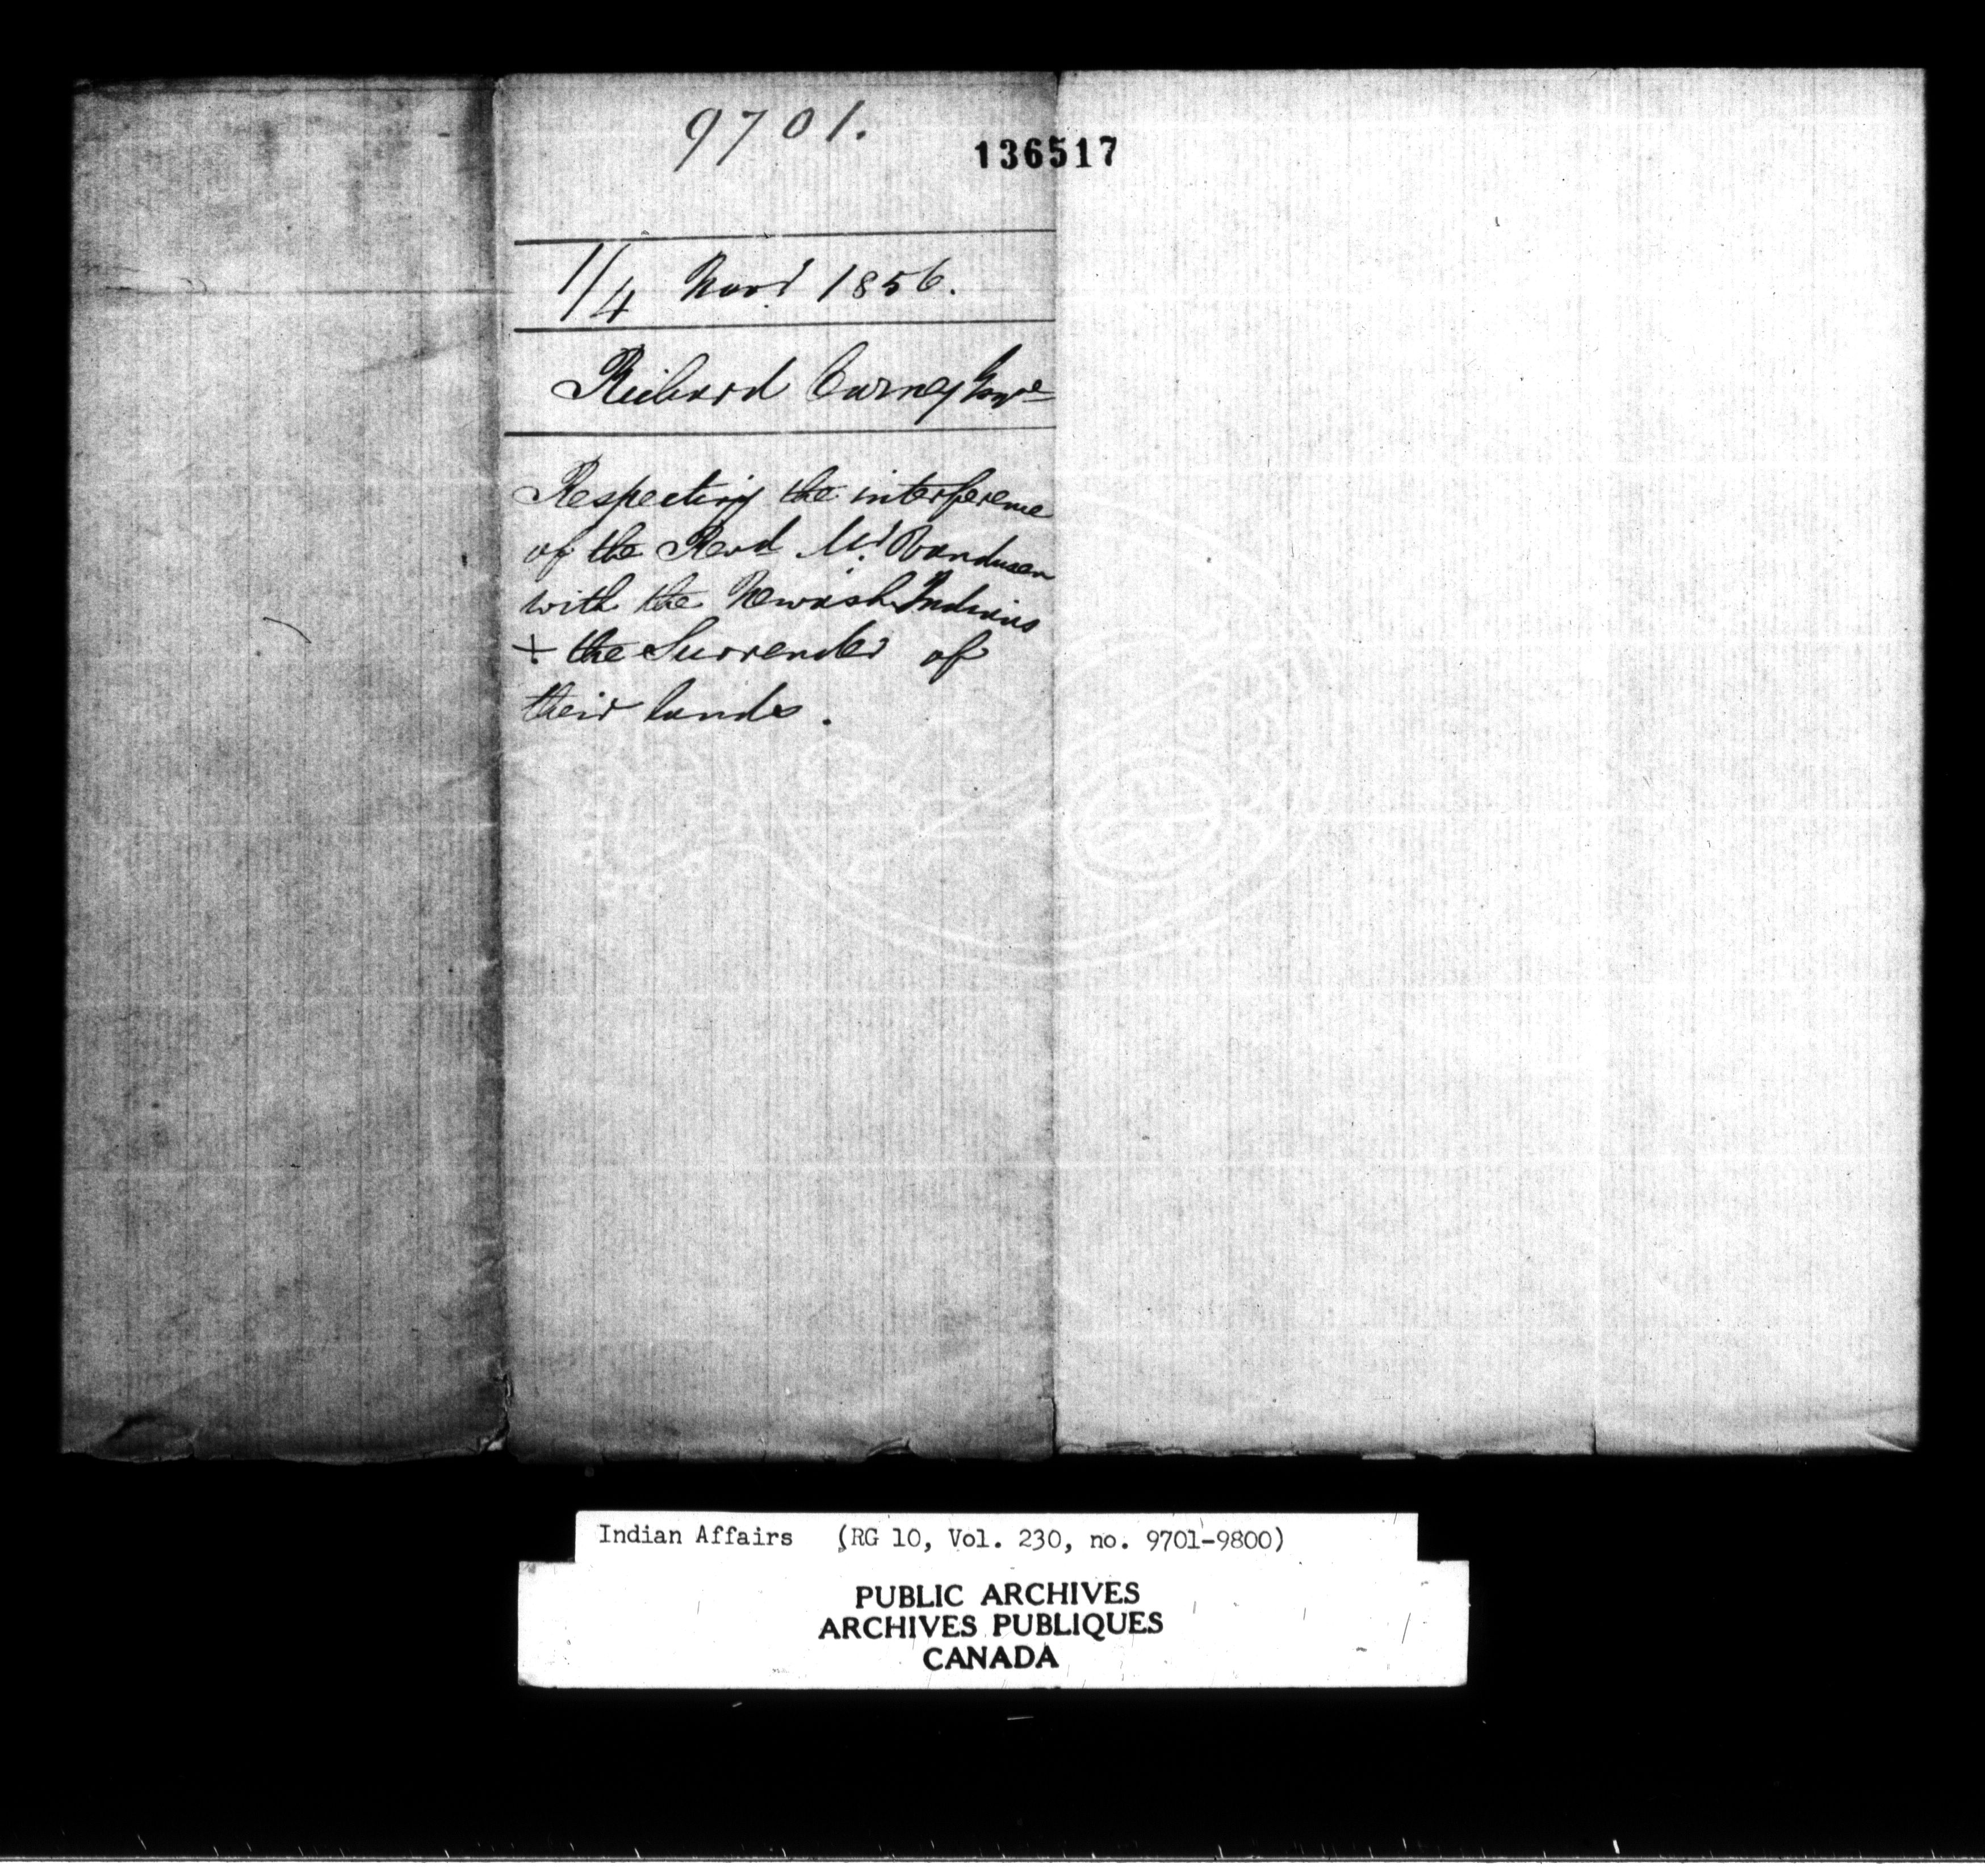 9701.
136517
1/4 Novr 1856.
Richard Carney Esqre
Respecting the interference
of the Revd Mr Vandusen
with the Newash Indians
+ the Surrender of
their lands.
Indian Affairs (RG 10, Vol. 230, no. 9701-9800)
PUBLIC ARCHIVES
ARCHIVES PUBLIQUES
CANADA